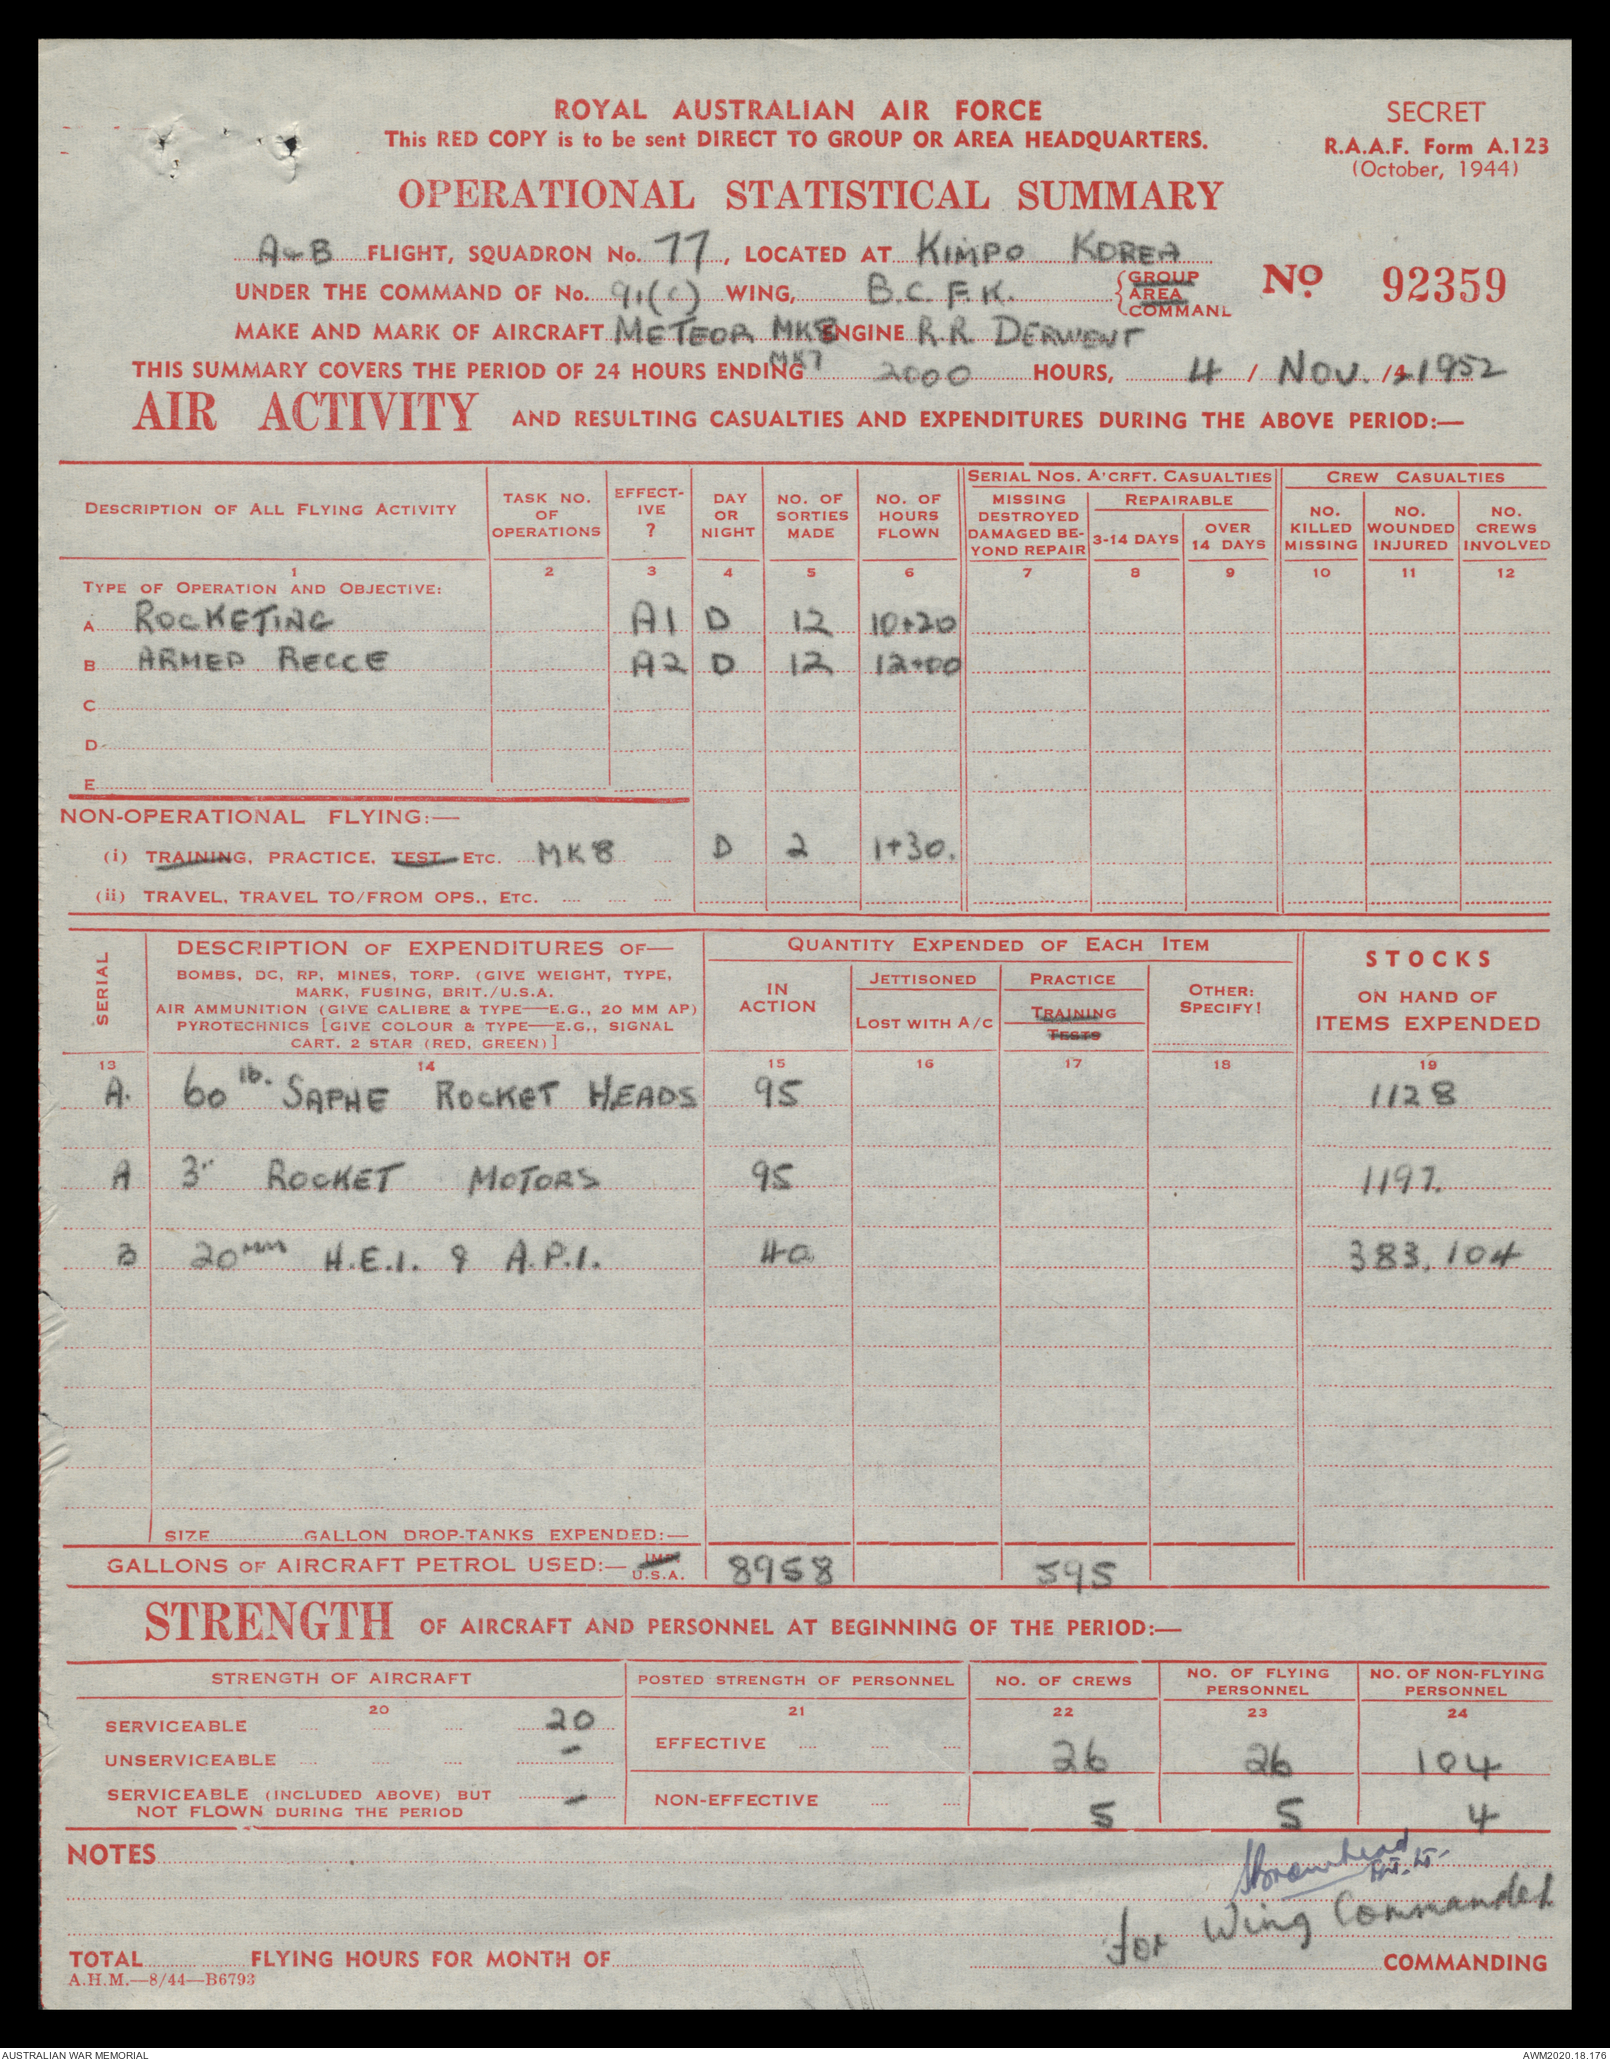 ROYAL AUSTRALIAN AIR FORCE
SECRET
This RED COPY is to be sent DIRECT TO GROUP OR AREA HEADQUARTERS.
R.A.A.F. Form A.123
(October, 1944)
OPERATIONAL STATISTICAL SUMMARY
A & B FLIGHT, SQUADRON No. 77, LOCATED AT KIMPO KOREA
UNDER THE COMMAND OF No. 91(C) WING, B.C.F.K. GROUP AREA COMMAND
No. 92359
MAKE AND MARK OF AIRCRAFT METEOR MK8 ENGINE R.R. DERWENT
MK7
THIS SUMMARY COVERS THE PERIOD OF 24 HOURS ENDING 2000 HOURS, 4 / NOV. / 1952
AIR ACTIVITY AND RESULTING CASUALTIES AND EXPENDITURES DURING THE ABOVE PERIOD:—
DESCRIPTION OF ALL FLYING ACTIVITY TASK NO. OF OPERATIONS EFFECT-IVE ? DAY OR NIGHT NO. OF SORTIES MADE NO. OF HOURS FLOWN SERIAL NOS. A'CRFT. CASUALTIES CREW CASUALTIES
MISSING DESTROYED DAMAGED BE-YOND REPAIR REPAIRABLE 3-14 DAYS OVER 14 DAYS NO. KILLED MISSING NO. WOUNDED INJURED NO. CREWS INVOLVED
1 2 3 4 5 6 7 8 9 10 11 12
TYPE OF OPERATION AND OBJECTIVE:
A ROCKETING A1 D 12 10+20
B ARMED RECCE A2 D 12 12+00
C
D
E
NON-OPERATIONAL FLYING:—
(i) TRAINING, PRACTICE, TEST ETC. MK8 D 2 1+30.
(ii) TRAVEL, TRAVEL TO/FROM OPS., ETC.
SERIAL DESCRIPTION OF EXPENDITURES OF— QUANTITY EXPENDED OF EACH ITEM STOCKS
BOMBS, DC, RP, MINES, TORP. (GIVE WEIGHT, TYPE, MARK, FUSING, BRIT./U.S.A.
AIR AMMUNITION (GIVE CALIBRE & TYPE—E.G., 20 MM AP)
PYROTECHNICS [GIVE COLOUR & TYPE—E.G., SIGNAL CART. 2 STAR (RED, GREEN)]
IN ACTION JETTISONED LOST WITH A/C PRACTICE TRAINING TESTS OTHER: SPECIFY! ON HAND OF ITEMS EXPENDED
13 14 15 16 17 18 19
A. 60 lb. SAPHE ROCKET HEADS 95 1128
A 3" ROCKET MOTORS 95 1197.
B 20MM H.E.I. & A.P.I. 40 383,104
SIZE GALLON DROP-TANKS EXPENDED:—
GALLONS OF AIRCRAFT PETROL USED:— IMP. U.S.A. 8958 595
STRENGTH OF AIRCRAFT AND PERSONNEL AT BEGINNING OF THE PERIOD:—
STRENGTH OF AIRCRAFT POSTED STRENGTH OF PERSONNEL NO. OF CREWS NO. OF FLYING PERSONNEL NO. OF NON-FLYING PERSONNEL
20 21 22 23 24
SERVICEABLE 20
EFFECTIVE 26 26 104
UNSERVICEABLE -
SERVICEABLE (INCLUDED ABOVE) BUT NOT FLOWN DURING THE PERIOD -
NON-EFFECTIVE 5 5 4
NOTES
Flt. Lt.
for Wing Commander
TOTAL FLYING HOURS FOR MONTH OF COMMANDING
A.H.M.—8/44—B6793
AUSTRALIAN WAR MEMORIAL
AWM2020.18.176